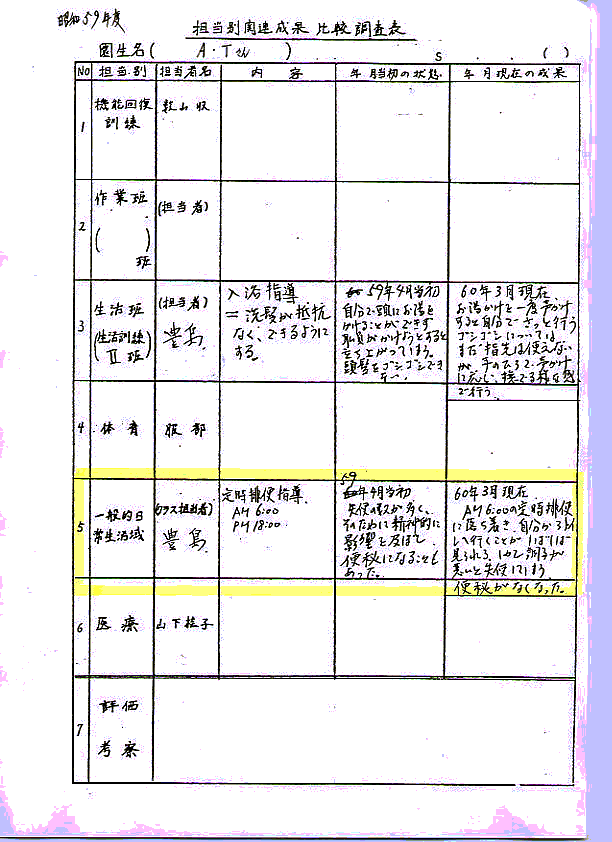 昭和59年度
担当別関連成果比較調査表
園生名( A.Tさん ) S . . ( )
NO 担当別 担当者名 内容 年月当初の状態 年月現在の成果
1 機能回復訓練
2 作業班 ( ) 班 (担当者)
3 生活班 (生活訓練 II 班) (担当者) 豊島
入浴指導
=洗髪が抵抗
なく、できるように
する。
59年4月当初
自分で頭にお湯を
かけることができず
職員がかけようとすると
立ち上がってしまう。
頭髪をゴシゴシできない。
60年3月現在
お湯かけを一度声かけ
すると自分でさっと行う
ゴシゴシについては
まだ指先は使えない
が、手のひらで声かけ
に応じ、撫でる様な感
で行う。
4 体育 服部
5 一般的日常生活域 (クラス担当者) 豊島
定時排便指導
AM 6:00
PM 18:00
59年4月当初
失便の状が多く、
そのために精神的に
影響を及ぼし
便秘になることも
あった。
60年3月現在
AM 6:00の定時排便
に落ち着き、自分から
行くことがしばしば
見られる。しかし調子が
悪いと失便してしまう
便秘がなくなった。
6 医療 山下桂子
7 評価
考察